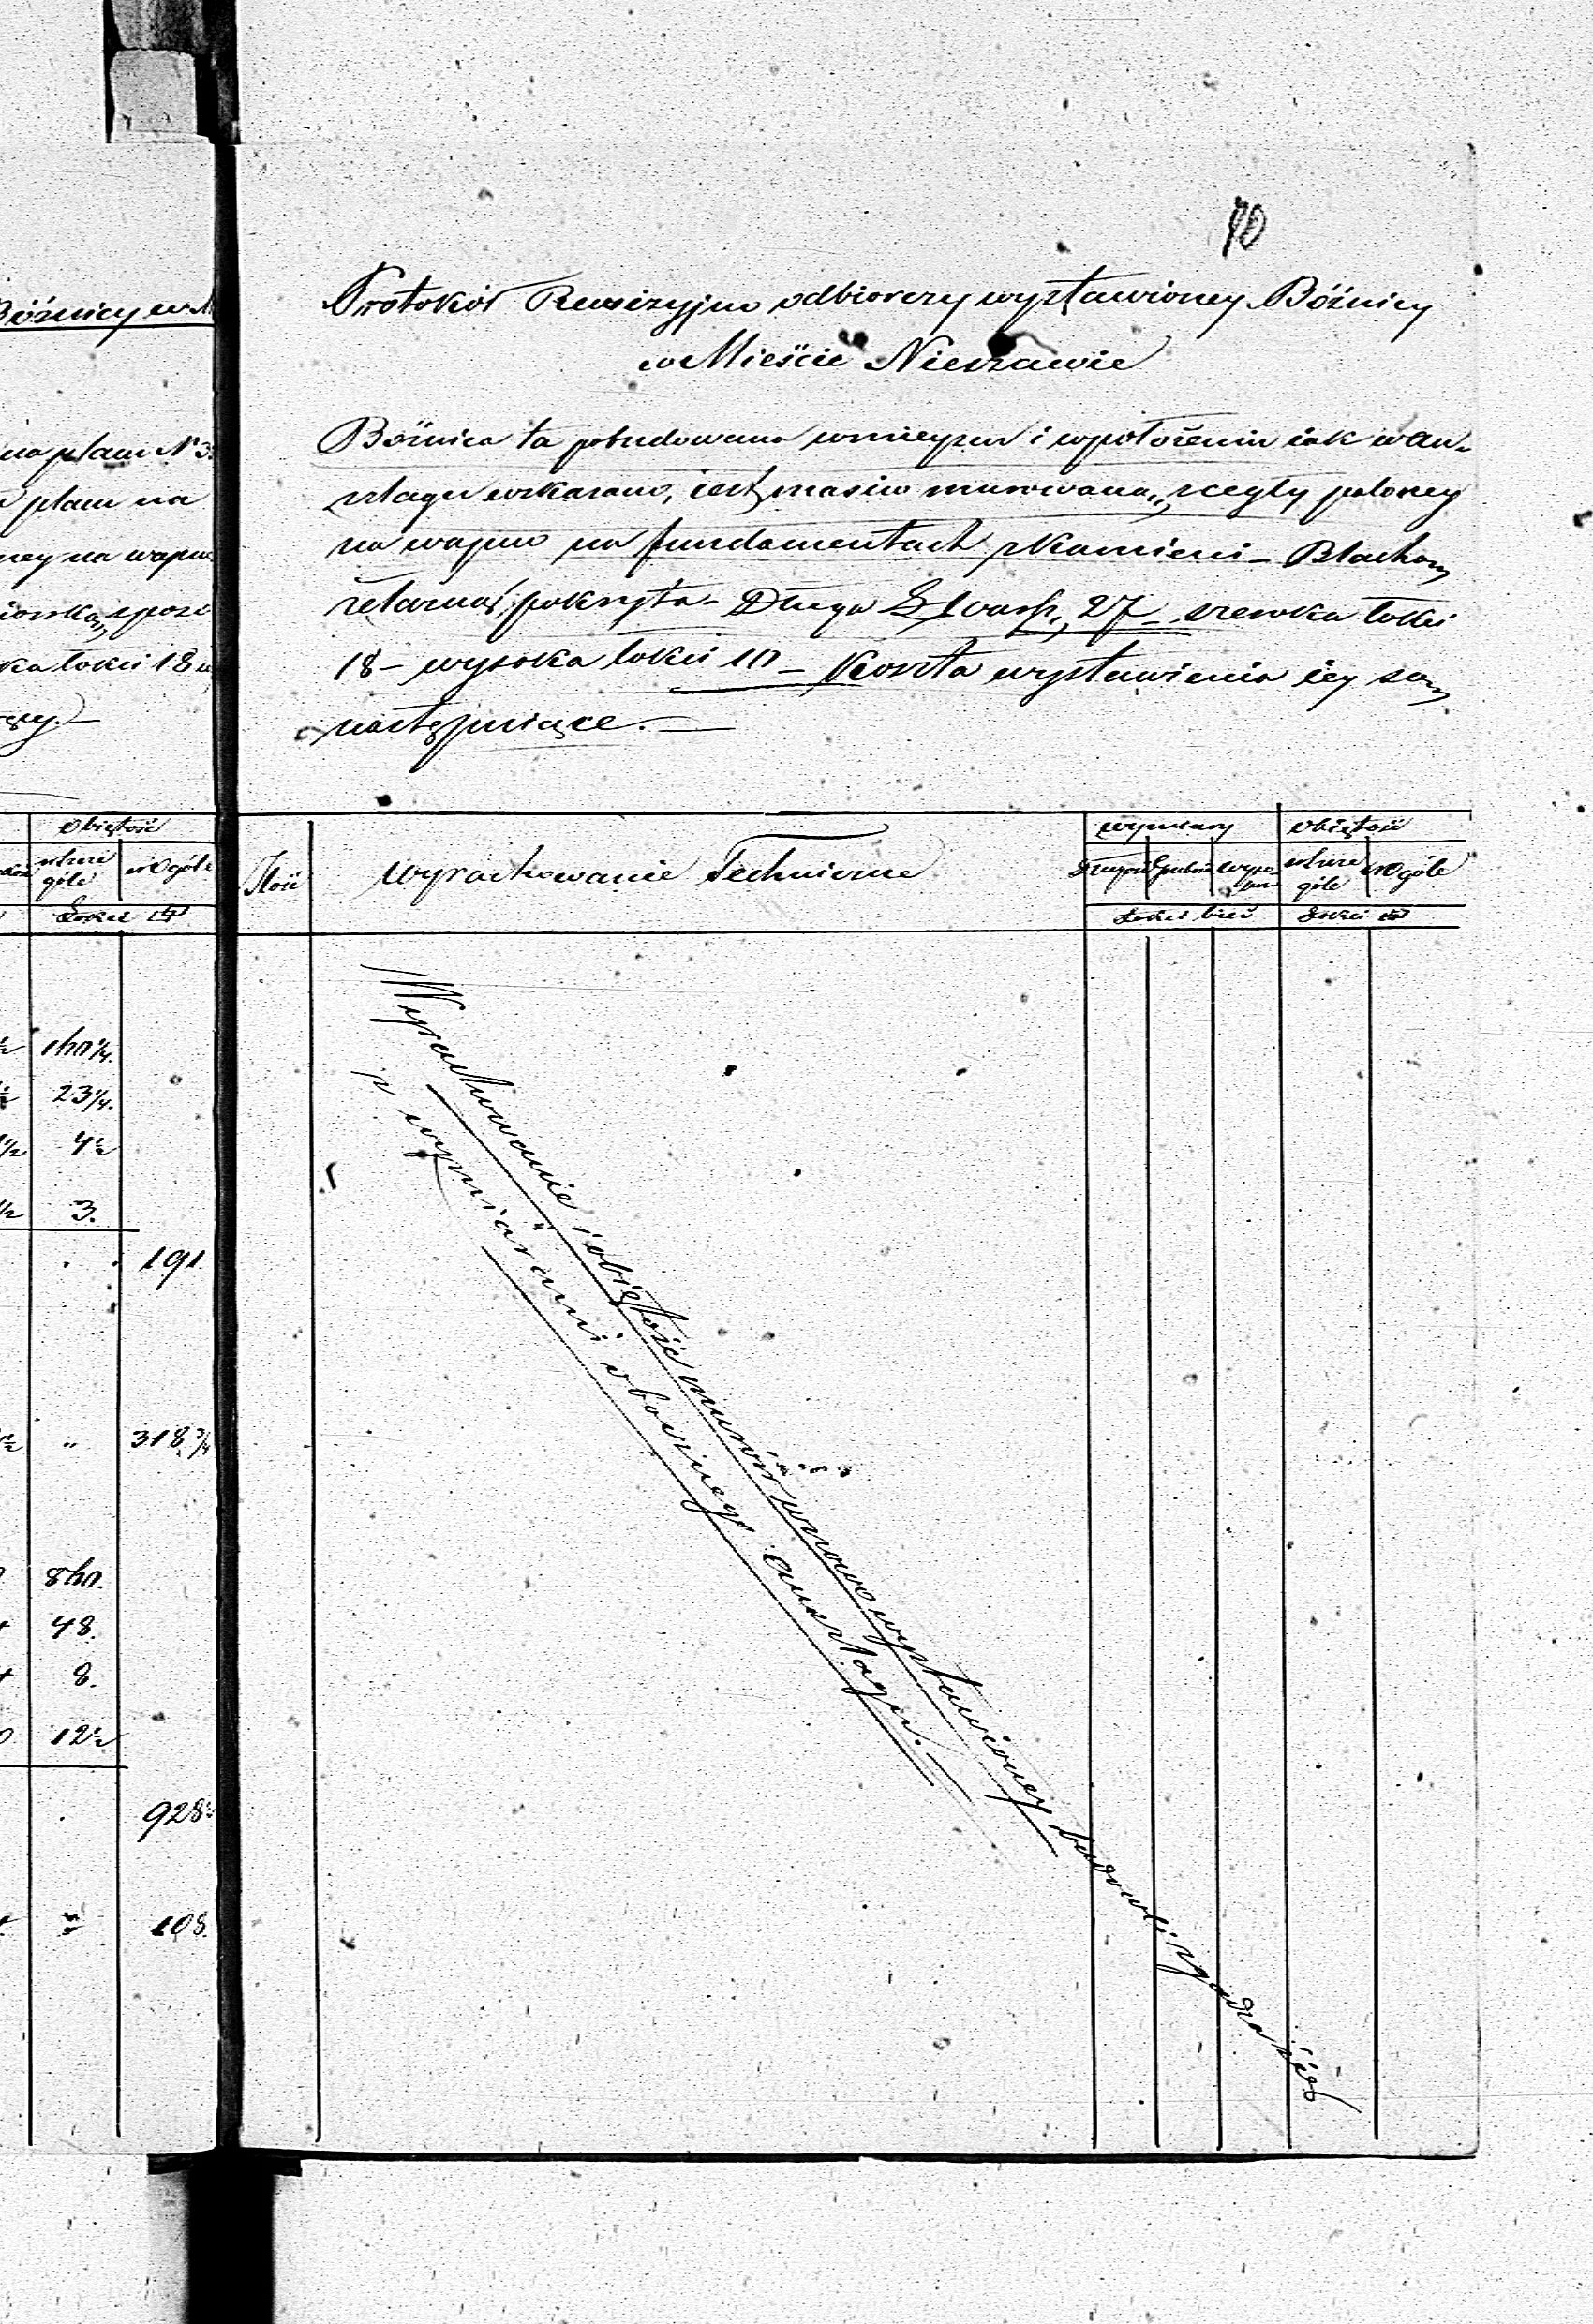 Bóźnicy w M
na plam N 3
plam na
ney na wapno
ka łokci 18
Obiętość
w szcze góle
w Ogóle
Łokci
23 1/4.
4 1/2
3.
191
318 3/4
48.
8.
12 1/2
928 1/2
108.
70
Protokół Rewizyjno odbiorczy wystawioney Bóźnicy
w Mieście Nieszawie
Bóźnica ta pobudowana w mieyscu i w położeniu iak w an-
szlagu wskazano, iest masiw murowana, z cegły paloney
na wapno na fundamentach z Kamieni – Blachą
żelazną pokryta – Długa Ł 27 – szeroka łokci
18 – wysoka łokci 10 – Koszta wystawienia iey są
następuiące. –
Ilość
Wyrachowanie Techniczne
Wymiary
Obiętość
Długość
Grubość
Wyso kość
w szcze góle
w Ogóle
Łokci bież
Łokci
Wyrachowanie i obiętość murów w nowo wystawioney budowli zgadza się
z wymiarami w anszlagu. –